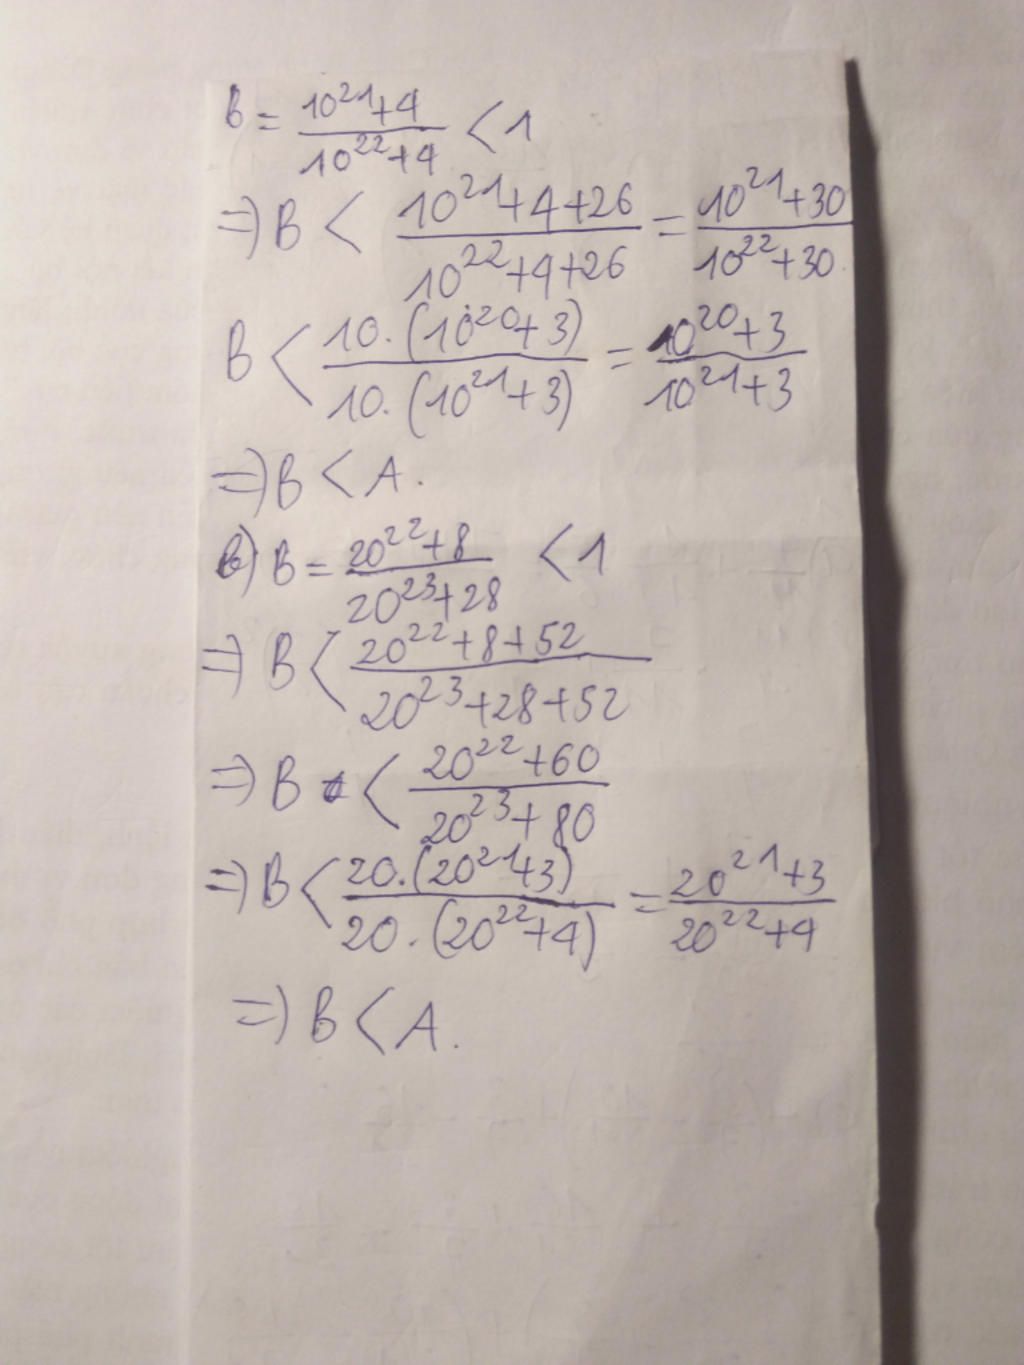 B = (10²¹+4)/(10²²+4) < 1
=> B < (10²¹+4+26)/(10²²+4+26) = (10²¹+30)/(10²²+30)
B < (10.(10²⁰+3))/(10.(10²¹+3)) = (10²⁰+3)/(10²¹+3)
=> B < A.
b) B = (20²²+8)/(20²³+28) < 1
=> B < (20²²+8+52)/(20²³+28+52)
=> B < (20²²+60)/(20²³+80)
=> B < (20.(20²¹+3))/(20.(20²²+4)) = (20²¹+3)/(20²²+4)
=> B < A.